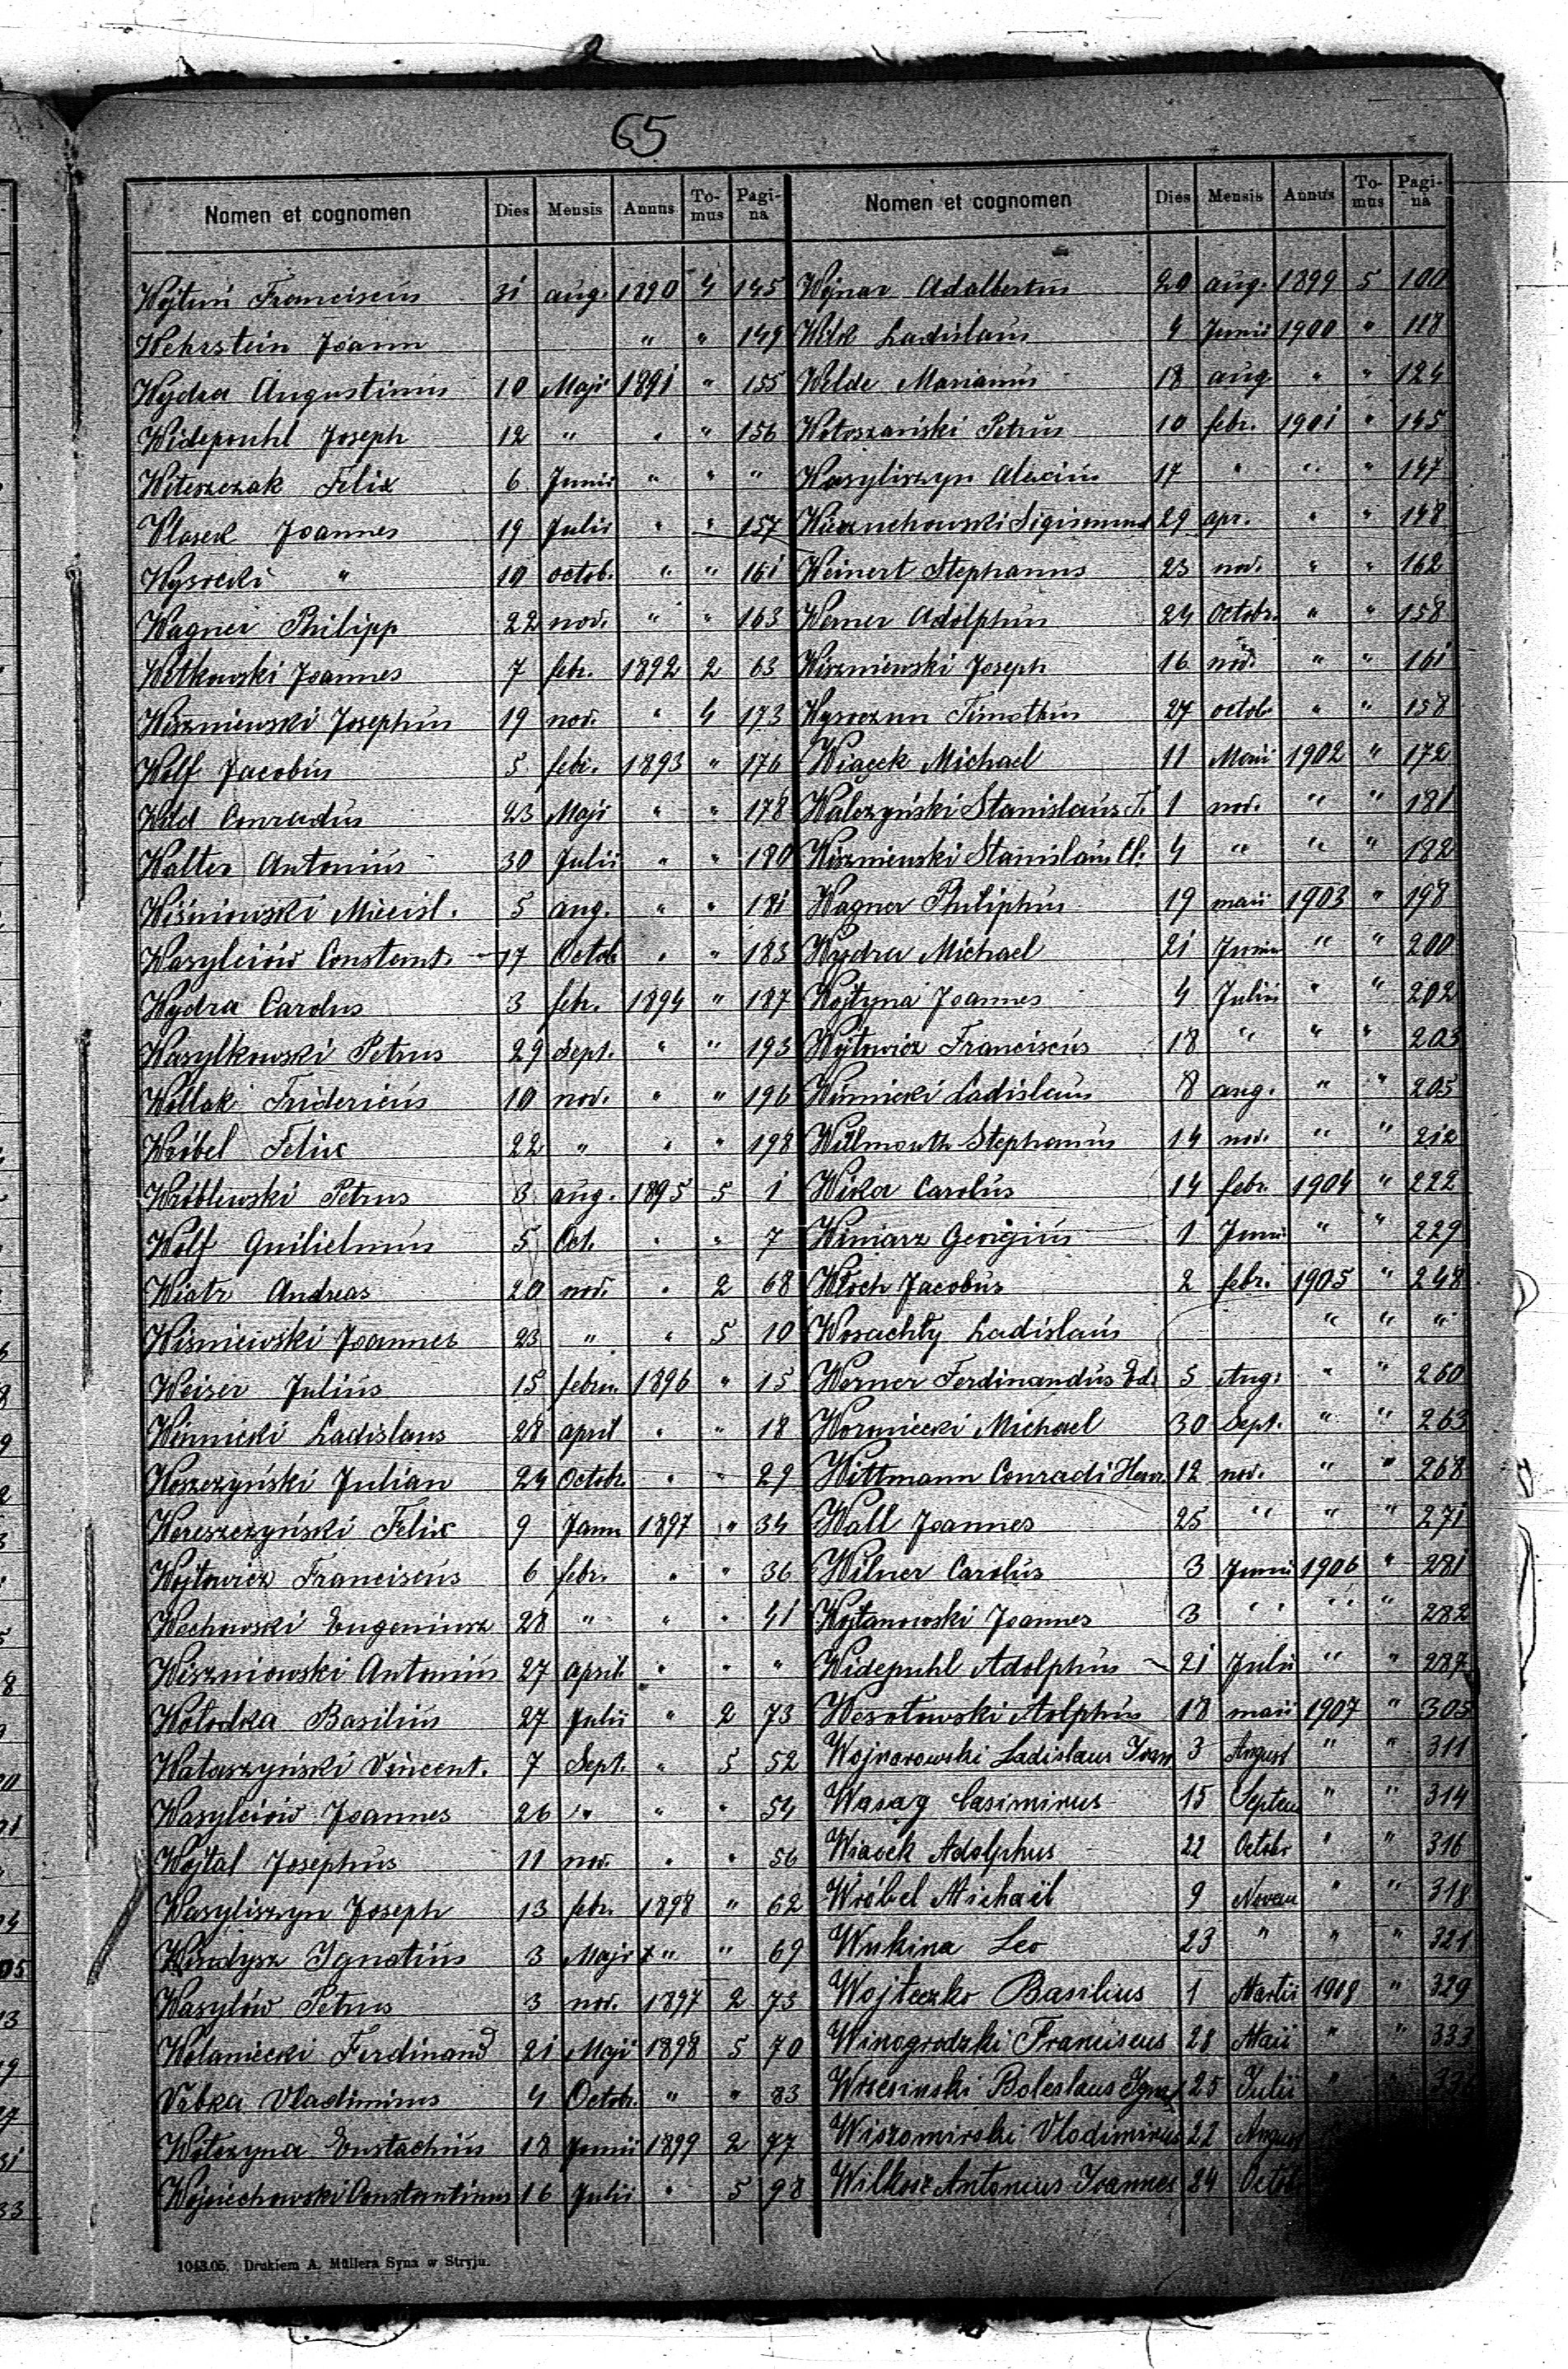 65
Nomen et cognomen Dies Mensis Annus To-mus Pagi-na
Wojtuń Franciscus 31 aug. 1890 4 145
Wehrstein Joann " " 149
Wydra Augustinus 10 Maji 1891 " 155
Widepouhl Joseph 12 " " " 156
Witeszczak Felix 6 Junii " " "
Vlasek Joannes 19 Julii " " 157
Wysocki " 10 octob. " " 161
Wagner Philipp 22 nov. " " 163
Witkowski Joannes 7 febr. 1892 2 63
Wiszniewski Josephus 19 nov. " 4 173
Wolf Jacobus 5 febr. 1893 " 176
Wild Conradus 23 Maji " " 178
Walter Antonius 30 Julii " " 180
Wiśniowski Miecisl. 5 aug. " " 181
Wasylciów Constant. 17 Octob " " 183
Wydra Carolus 3 febr. 1894 " 187
Wasylkowski Petrus 29 Sept. " " 193
Wollak Fridericus 10 nov. " " 196
Wróbel Felix 22 " " " 198
Wróblewski Petrus 3 aug. 1895 5 1
Wolf Guilielmus 5 Oct. " " 7
Wiatr Andreas 20 nov. " 2 68
Wiśniewski Joannes 23 " " 5 10
Weiser Julius 15 febru. 1896 " 15
Winnicki Ladislaus 28 april " " 18
Woszczyński Julian 24 Octob. " " 29
Wereszczyński Felix 9 Janu 1897 " 34
Wojtowicz Franciscus 6 febr. " " 36
Wechowski Eugeniusz 28 " " " 41
Wiszniowski Antonius 27 april. " " "
Wolodka Basilius 27 Julii " 2 73
Wataszyński Vincent. 7 Sept. " 5 52
Wasylciów Joannes 26 " " " 54
Wojtal Josephus 11 nov. " " 56
Wasyliszyn Joseph 13 febr. 1898 " 62
Windysz Ignatius 3 Maji " " 69
Wasylów Petrus 3 nov. 1897 2 73
Wolaniecki Ferdinand 21 Maji 1898 5 70
Vrbka Vladimirus 4 Octob. " " 83
Wolczyna Eustachius 18 Junii 1899 2 77
Wojciechowski Constantinus 16 Julii " 5 98
Nomen et cognomen Dies Mensis Annus To-mus Pagi-na
Wojnar Adalbertus 20 aug. 1899 5 100
Wilk Ladislaus 4 Junii 1900 " 118
Welde Marianus 18 aug. " " 124
Wołoszański Petrus 10 febr. 1901 " 145
Wasyliszyn Alexius 17 " " " 147
Sigismund 29 apr. " " 148
Weinert Stephanus 23 nov. " " 162
Werner Adolphus 24 Octobr. " " 158
Wiszniewski Joseph 16 nov. " " 161
Wysoczan Timothus 27 octob " " 158
Wiącek Michael 11 Maii 1902 " 172
Walczyński Stanislaus T. 1 nov. " " 181
Wiszniewski Stanislaus Cl. 4 " " " 182
Wagner Philiphus 19 maii 1903 " 198
Wydra Michael 21 Junii " " 200
Wojtyna Joannes 4 Julii " " 202
Wojtowicz Franciscus 18 " " " 203
Winnicki Ladislaus 8 aug. " " 205
Willmouth Stephanus 14 nov. " " 212
Wilka Carolus 14 febr. 1904 " 222
Winiarz Georgius 1 Junii " " 229
Włoch Jacobus 2 febr. 1905 " 248
Wosachły Ladislaus " " "
Werner Ferdinandus Ed. 5 Aug. " " 260
Worniecki Michael 30 Sept. " " 263
Wittmann Conradi Henr. 12 nov. " " 268
Wall Joannes 25 " " " 271
Wilner Carolus 3 Junii 1906 " 281
Wojtanowski Joannes 3 " " " 282
Widepuhl Adolphus 21 Julii " " 287
Wesołowski Adolphus 18 maii 1907 " 305
Wojnarowski Ladislaus Ivan 3 August " " 311
Wasag Casimirus 15 Septem " " 314
Wiącek Adolphus 22 Octobr " " 316
Wróbel Michaël 9 Novem " " 318
Wukina Leo 23 " " " 321
Wojteczko Basilius 1 Martii 1908 " 329
Winogrodzki Franciscus 28 Maii " " 333
Wrzesinski Boleslaus Ignat 25 Julii "
Wiszomirski Vlodimirus 22 August
Wilkosz Antonius Joannes 24 Octob
1043.05. Drukiem A. Müllera Syna w Stryju.